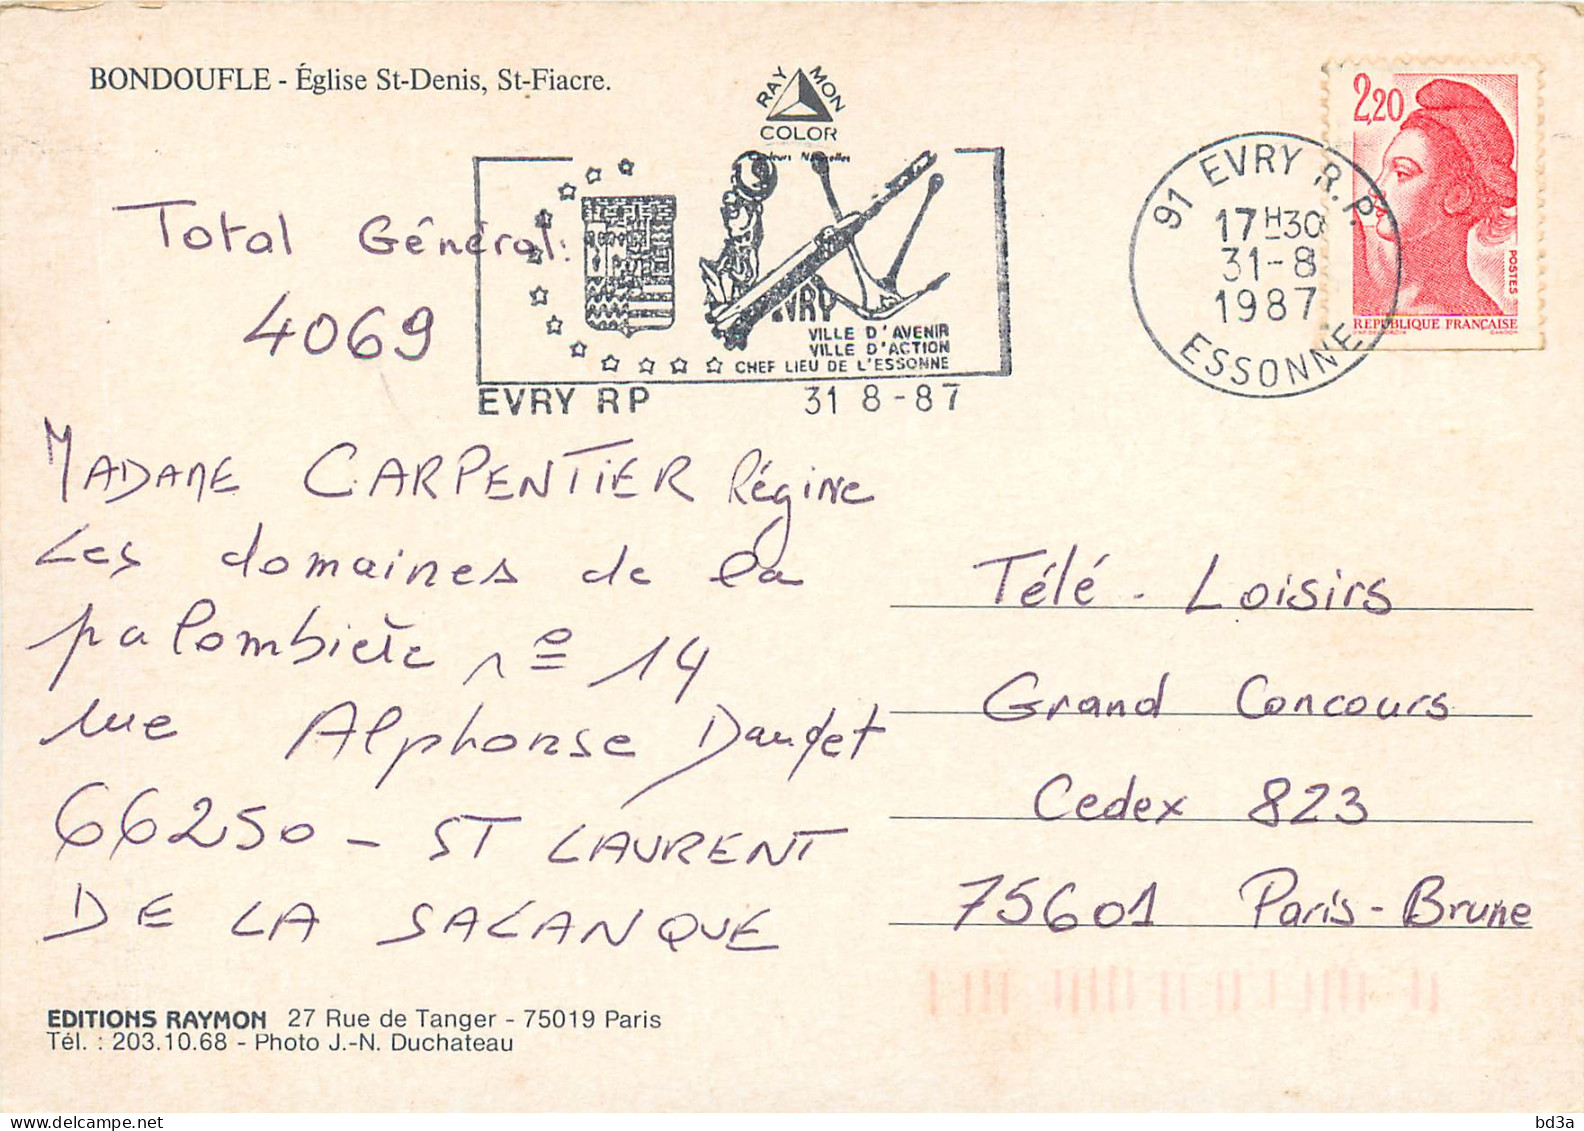 BONDOUFLE - Église St-Denis, St-Fiacre.
RAYMON
COLOR
Couleurs Naturelles
2,20
POSTES
REPUBLIQUE FRANÇAISE
91 EVRY R.P.
17H30
31-8
1987
ESSONNE
EVRY
VILLE D'AVENIR
VILLE D'ACTION
CHEF LIEU DE L'ESSONNE
EVRY RP 31 8-87
Total Général:
4069
MADAME CARPENTIER Régine
Les domaines de la
palombière nº 14
rue Alphonse Daudet
66250 - ST LAURENT
DE LA SALANQUE
Télé - Loisirs
Grand Concours
Cedex 823
75601 Paris-Brune
EDITIONS RAYMON 27 Rue de Tanger - 75019 Paris
Tél. : 203.10.68 - Photo J.-N. Duchateau
bd3a